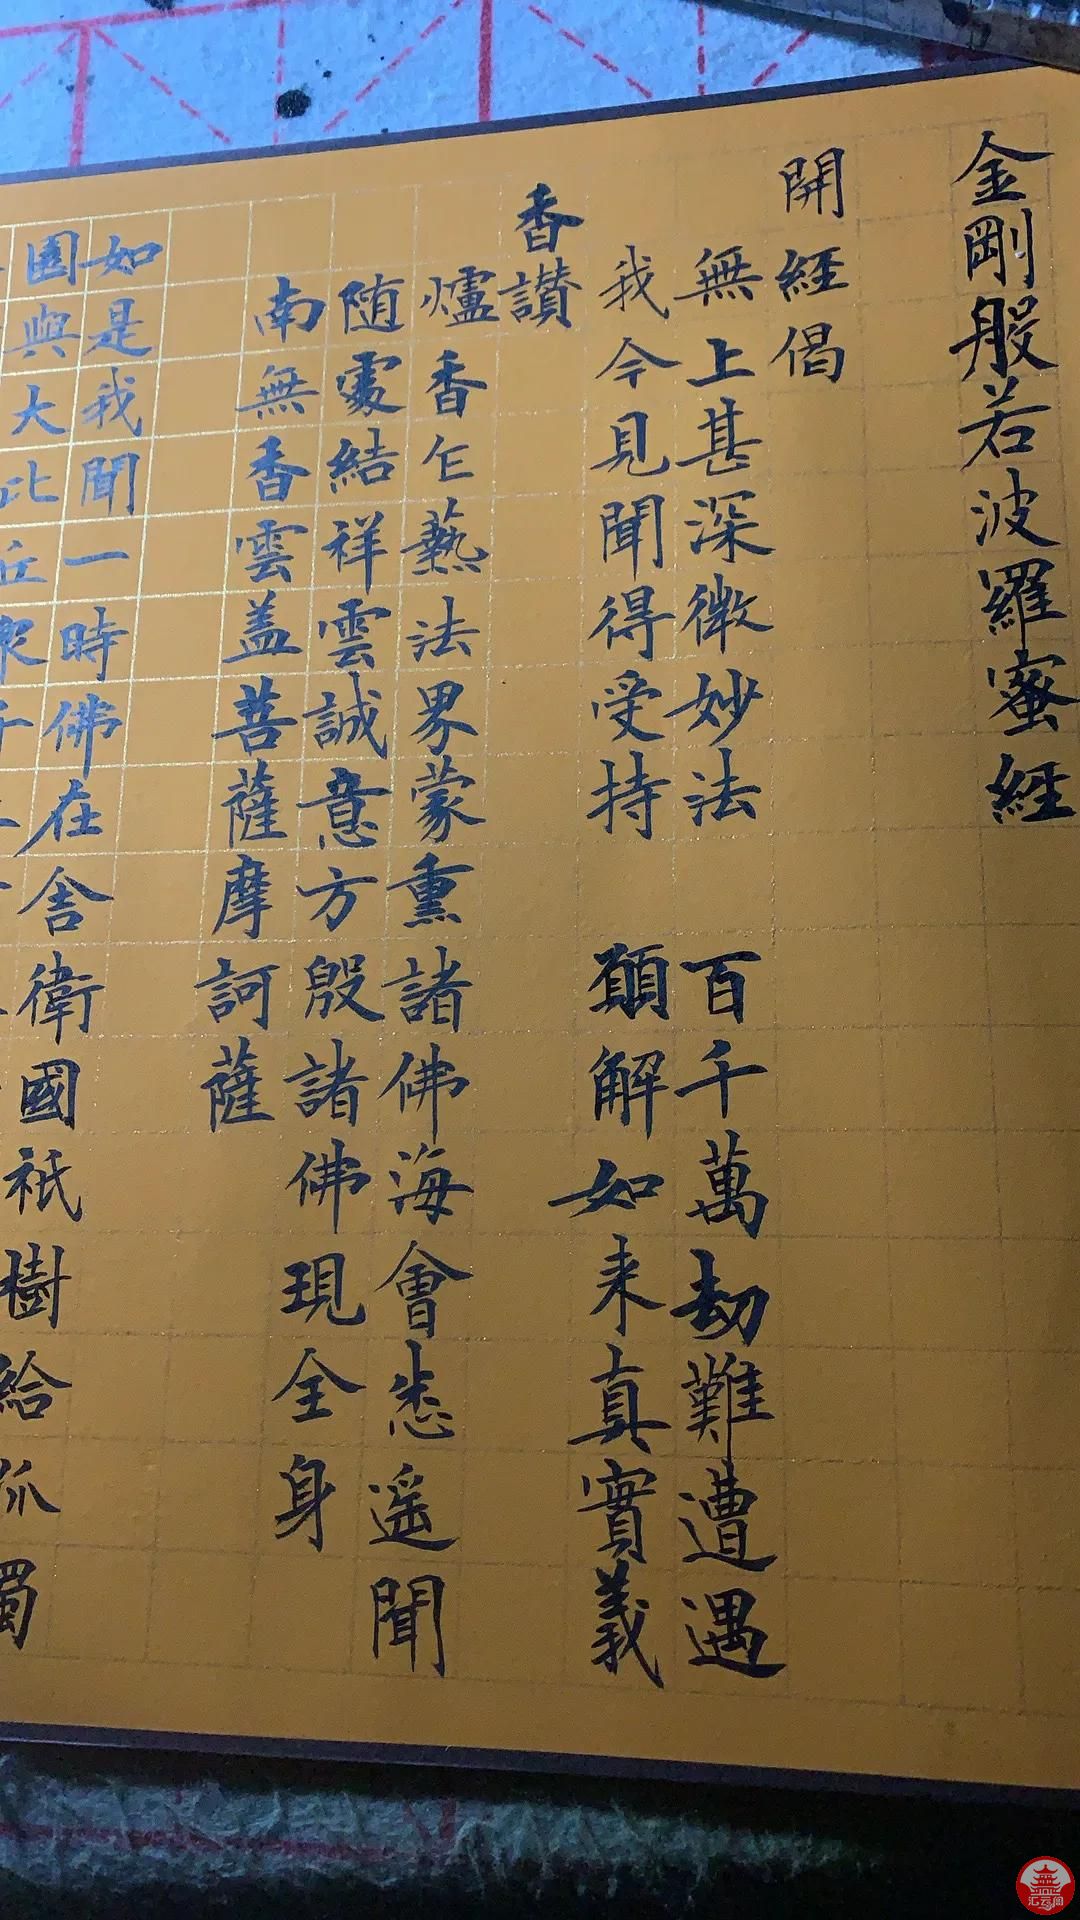 金剛般若波羅蜜經
開經偈
無上甚深微妙法 百千萬劫難遭遇
我今見聞得受持 願解如来真實義
香讃
爐香乍爇法界蒙熏諸佛海會悉遥聞
随處結祥雲誠意方殷諸佛現全身
南無香雲盖菩薩摩訶薩
如是我聞一時佛在舍衛國祇樹給孤獨
園與大比丘衆千
汇云阁